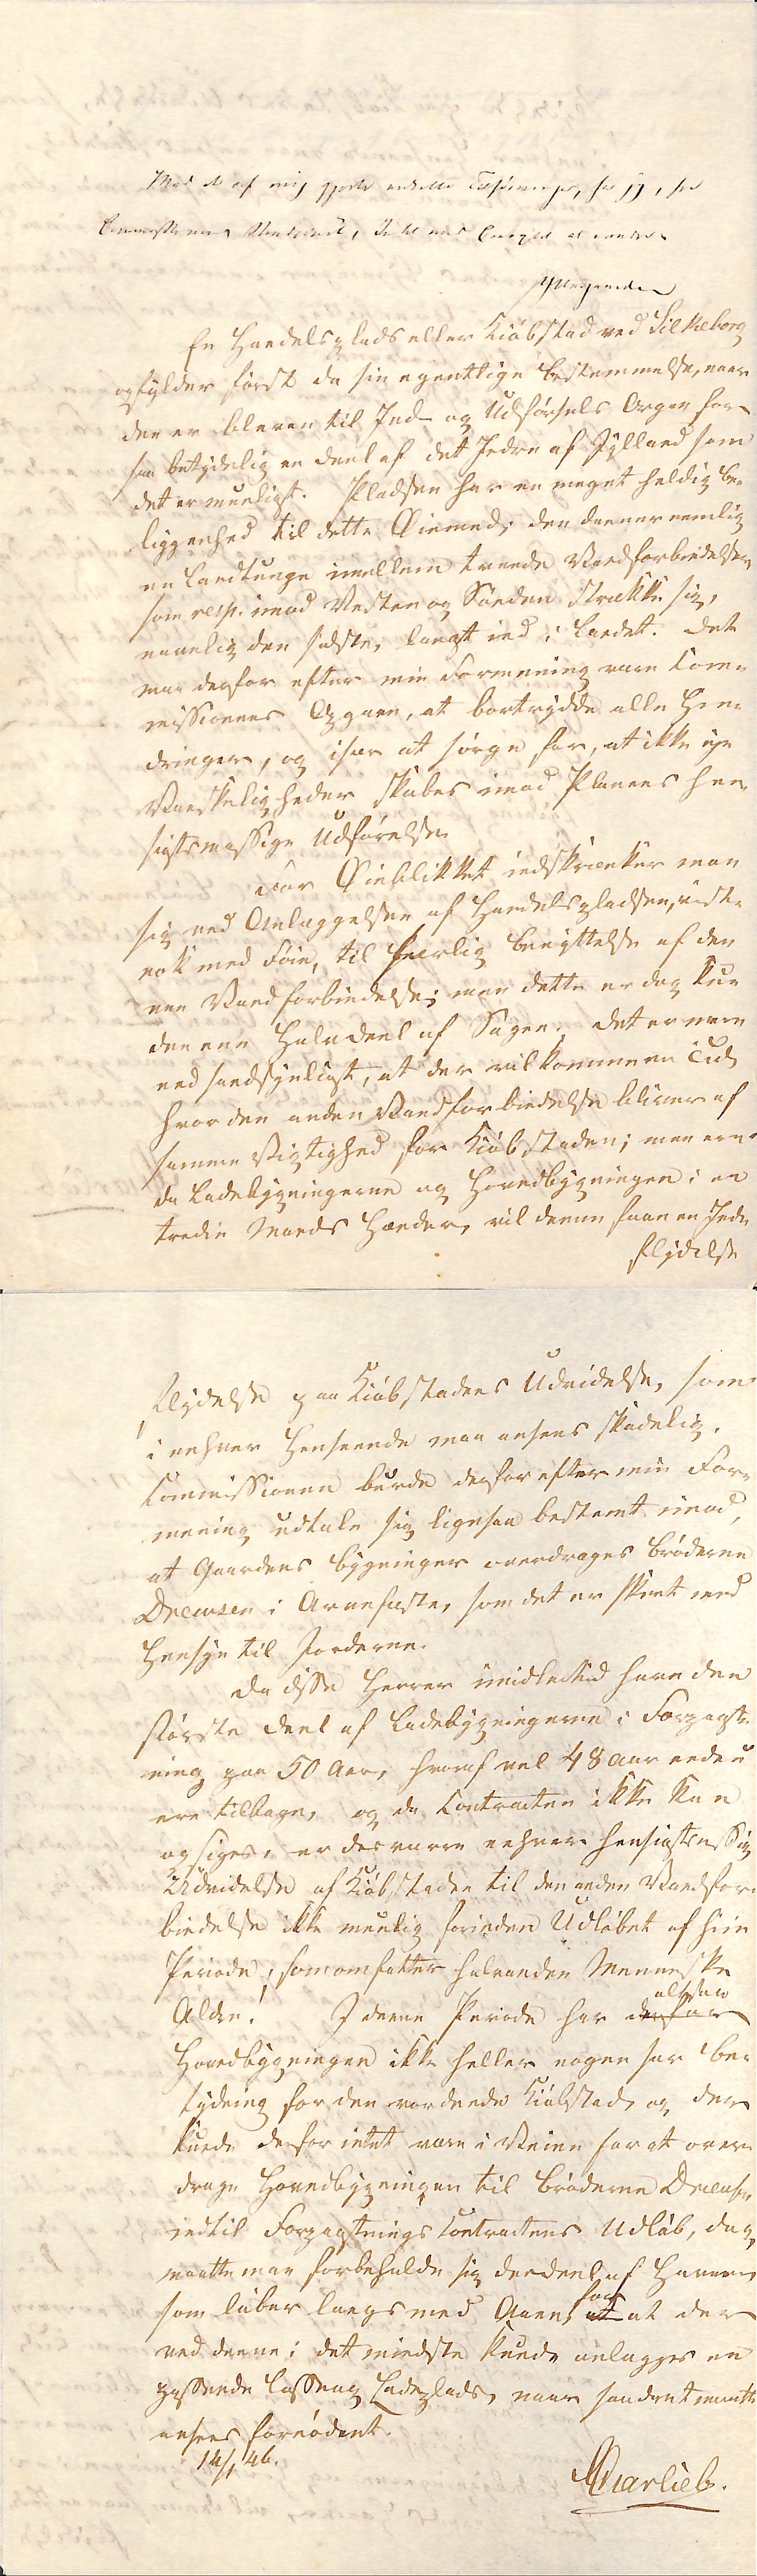 Med de af mig gjorte enkelte Tilføininger, har jeg, for
Commissionens Standpunct, Intet imod Concepten at erindre.
En Handelsplads eller Kiøbstad ved Silkeborg
opfylder først da sin egentlige Bestemmelse, naar
den er bleven til Ind- og Udførsels Organ for
saa betydelig en Deel af det Indre af Jylland som
det er mueligt. Pladsen har en meget heldig Be-
liggenhed til dette Øiemed; den danner nemlig
en Landtunge imellem tvende Vandforbindelser,
som resp. imod Vesten og Sønden strække sig,
navnlig den sidste, langt ind i Landet. Det
maa derfor efter min Formening være Com-
missionens Opgave, at bortrydde alle Hin-
dringer, og især at sørge for, at ikke nye
Vanskeligheder skabes imod Planens hen-
sigtsmæssige Udførelse.
For Øieblikket indskrænker man
sig ved Anlæggelsen af Handelspladsen, viist-
nok med Føie, til særlig Benyttelse af den
ene Vandforbindelse; men dette er dog kun
den ene Halvdeel af Sagen. Det er nem-
hvor den anden Vandforbindelse bliver af
samme Vigtighed for Kiøbstaden; men ere
da Ladebygningerne og Hovedbygningen i en
tredie Mands Hænder, vil denne faae en Ind-
flydelse
flydelse paa Kiøbstadens Udvidelse, som
i enhver Henseende maa ansees skadelig.
Commissionen burde derfor efter min For-
mening udtale sig ligesaa bestemt imod,
at Gaardens Bygninger overdrages Brødrene
Drewsen i Arvefæste, som det er skeet med
Hensyn til Jorderne.
Da disse Herrer imidlertid have den
største Deel af Ladebygningerne i Forpagt-
ning paa 50 Aar, hvoraf vel 48 Aar endnu
ere tilbage, og da Contracten ikke kan
opsiges, er desværre enhver hensigtsmæssig
Udvidelse af Kiøbstaden til den anden Vandfor-
bindelse ikke muelig forinden Udløbet af hiin
Periode, som omfatter halvanden Menneske
Alder. I denne Periode har derfor altsaa
Hovedbygningen ikke heller nogen stor Be-
tydning for den vordende Kiøbstad, og der
kunde derfor intet være i Veien for at over-
drage Hovedbygningen til Brødrene Drewsen
indtil Forpagtnings Contractens Udløb, dog
maatte man forbeholde sig den Deel af Haven
som løber langs med Aaen, for at at der
ved denne i det mindste kunde anlægges en
passende Losse og Ladeplads, naar saadant maatte
ansees fornødent.
14/1 46.
Garlieb.